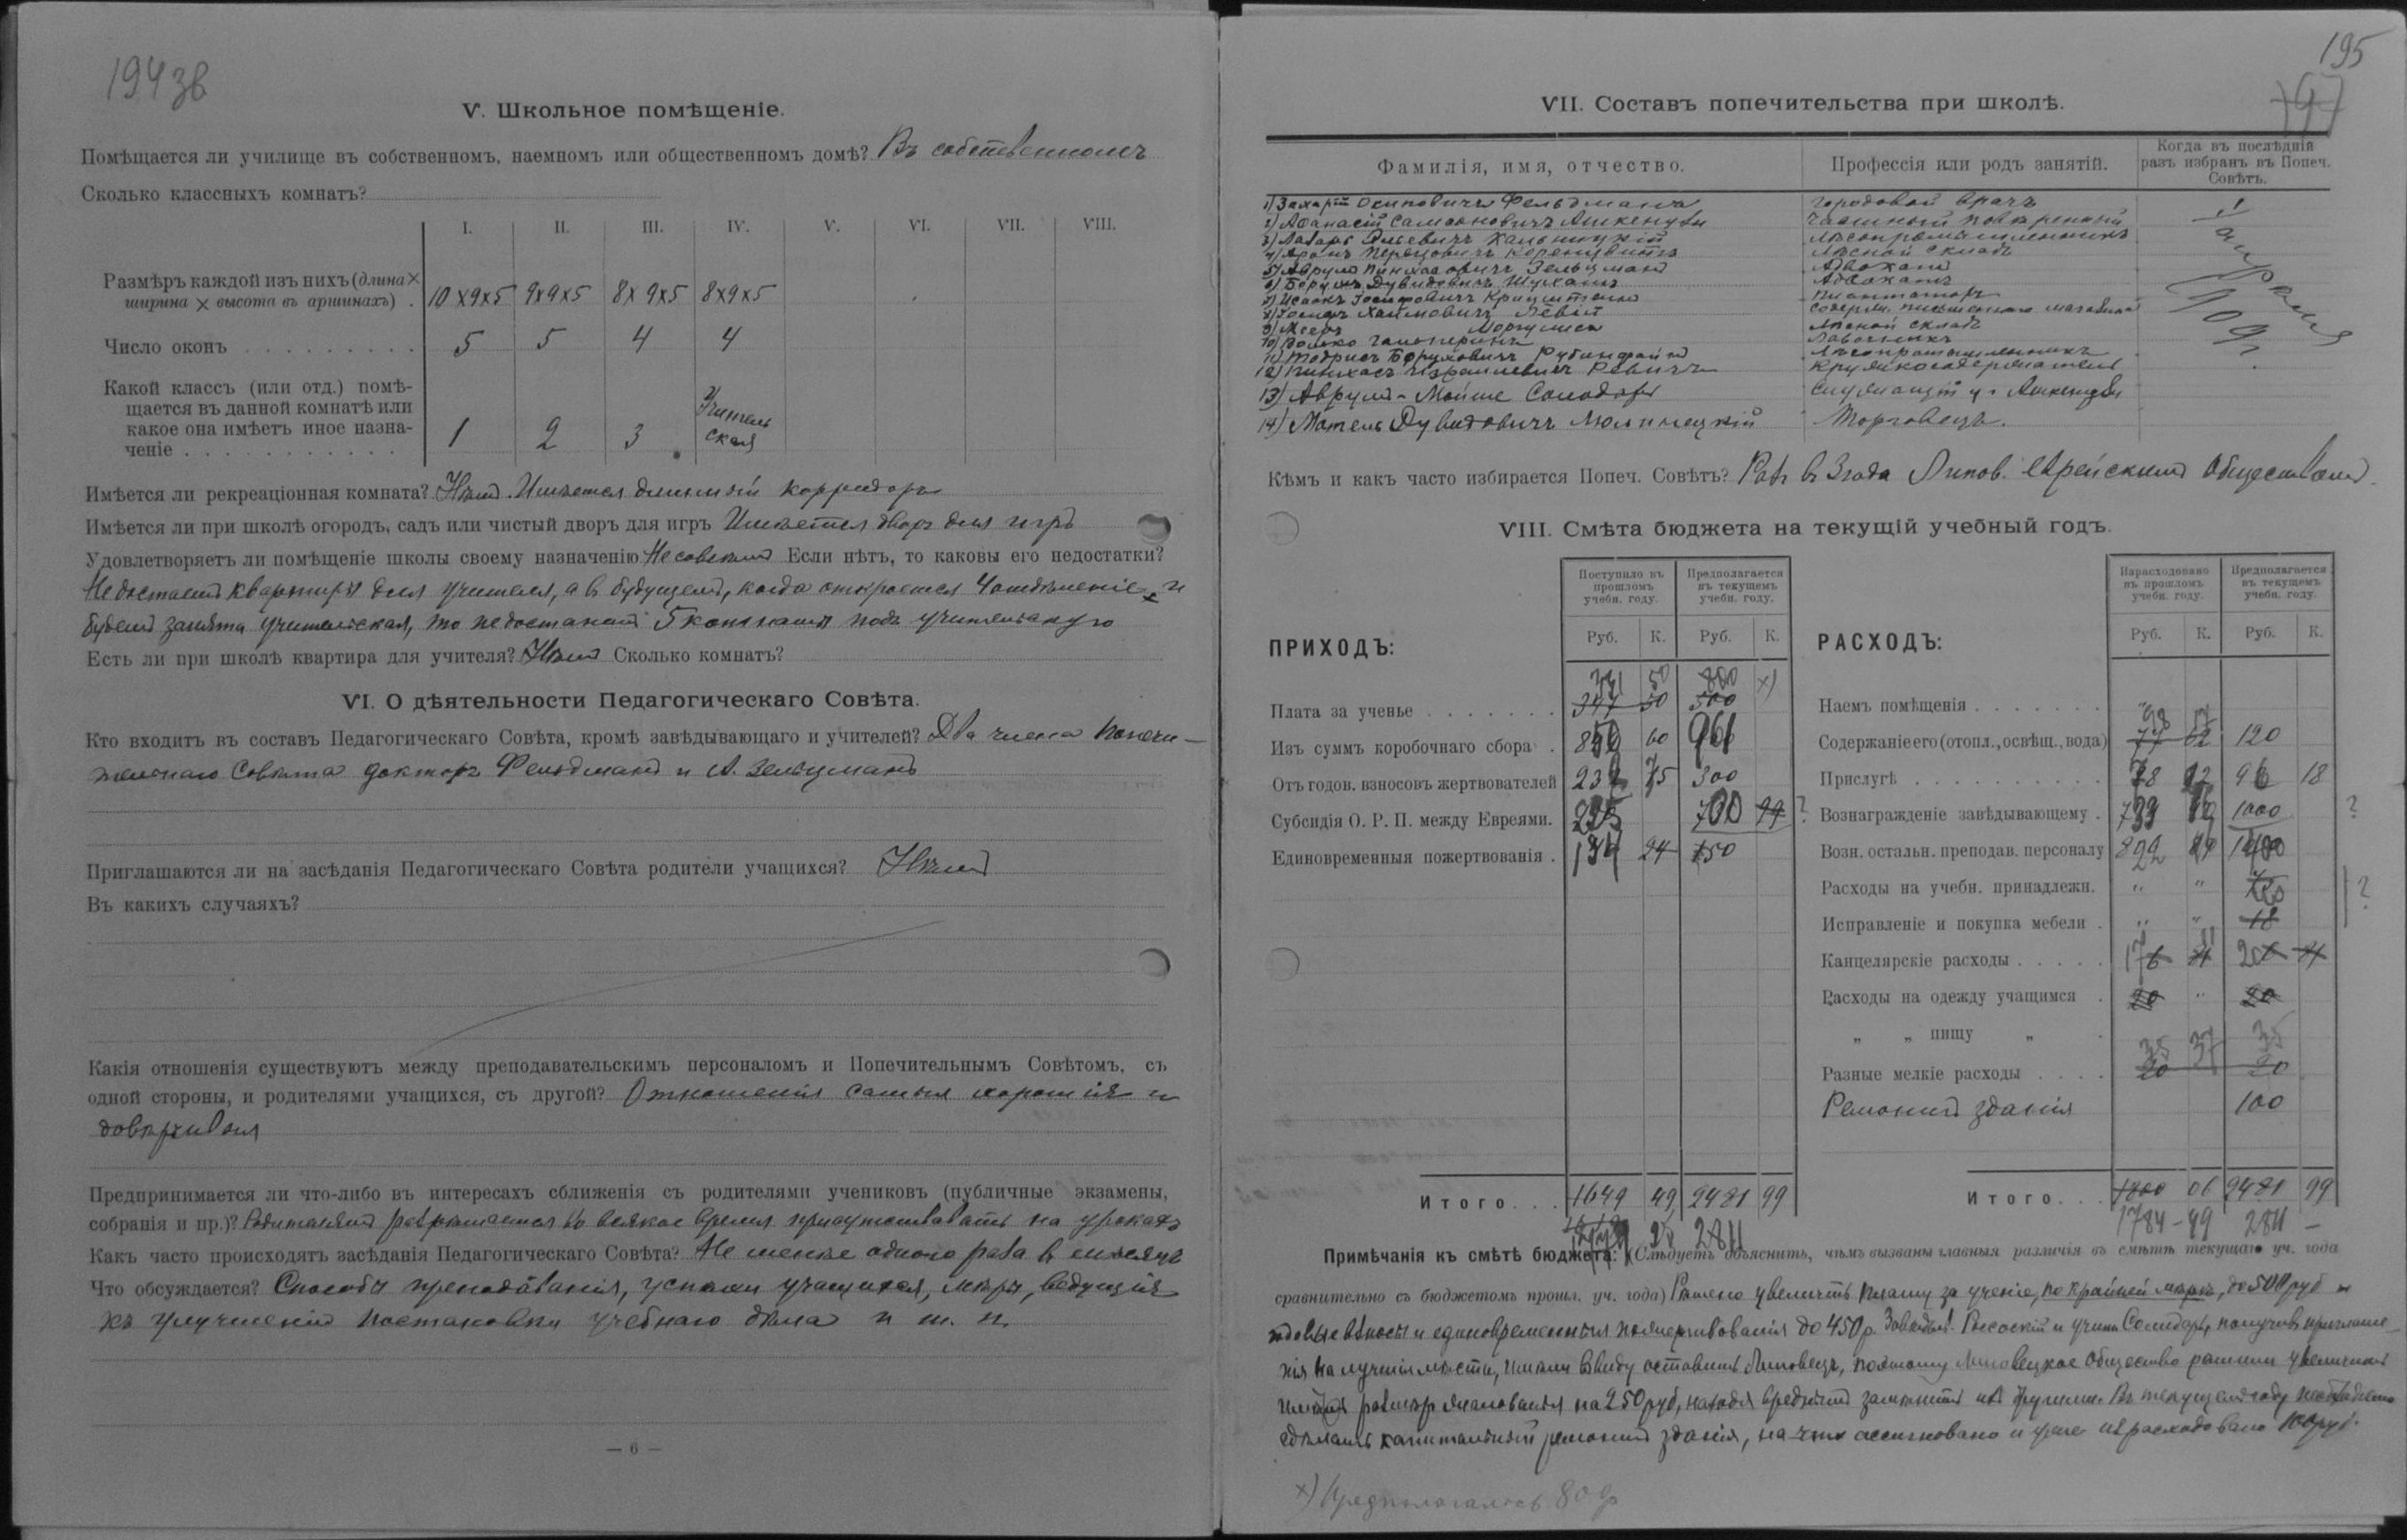 194 зв
V. Школьное помѣщеніе.
Помѣщается ли училище въ собственномъ, наемномъ или общественномъ домѣ? Въ собственномъ
Сколько классныхъ комнатъ?
I. II. III. IV. V. VI. VII. VIII.
Размѣръ каждой изъ нихъ (длина ×
ширина × высота въ аршинахъ) . 10×9×5 9×9×5 8×9×5 8×9×5
Число оконъ 5 5 4 4
Какой классъ (или отд.) помѣ-
щается въ данной комнатѣ или
какое она имѣетъ иное назна-
ченіе 1 2 3 Учитель
ская
Имѣется ли рекреаціонная комната? Нѣтъ. Имѣется длинный корридоръ
Имѣется ли при школѣ огородъ, садъ или чистый дворъ для игръ Имѣется дворъ для игръ
Удовлетворяетъ ли помѣщеніе школы своему назначенію Не совсѣмъ Если нѣтъ, то каковы его недостатки?
Недостаетъ квартиры для учителя, а въ будущемъ, когда откроется 4 отдѣленіе и
будетъ занята учительская, то недостанетъ 5 комнаты подъ учительскую
Есть ли при школѣ квартира для учителя? Нѣтъ Сколько комнатъ?
VI. О дѣятельности Педагогическаго Совѣта.
Кто входитъ въ составъ Педагогическаго Совѣта, кромѣ завѣдывающаго и учителей? Два члена попечи-
тельнаго Совѣта докторъ Фельдманъ и А. Зельцманъ
Приглашаются ли на засѣданія Педагогическаго Совѣта родители учащихся? Нѣтъ
Въ какихъ случаяхъ?
Какія отношенія существуютъ между преподавательскимъ персоналомъ и Попечительнымъ Совѣтомъ, съ
одной стороны, и родителями учащихся, съ другой? Отношенія самыя хорошія и
довѣрчивыя
Предпринимается ли что-либо въ интересахъ сближенія съ родителями учениковъ (публичные экзамены,
собранія и пр.)? Родителямъ разрѣшается во всякое время присутствовать на урокахъ
Какъ часто происходятъ засѣданія Педагогическаго Совѣта? Не менѣе одного раза въ мѣсяцъ
Что обсуждается? Способы преподаванія, успѣхи учащихся, мѣры, ведущія
къ улучшенію постановки учебнаго дѣла и т. п.
— 6 —
195
197
VII. Составъ попечительства при школѣ.
Фамилія, имя, отчество. Профессія или родъ занятій. Когда въ послѣдній
разъ избранъ въ Попеч.
Совѣтъ.
1) Захарій Осиповичъ Фельдманъ Городовой врачъ
2) Афанасій Самсоновичъ Ашкенузи Частный повѣренный
3) Лазарь Ильевичъ лѣсопромышленникъ
4) Аронъ Лѣсной складъ
5) Аврумъ Пинхасовичъ Зельцманъ Адвокатъ
6) Борухъ Дувидовичъ Адвокатъ
7) Исаакъ Іосифовичъ Плантаторъ
8) Іосифъ Хаимовичъ Левій Содерж. письменнаго магазина
9) Мееръ Моргулисъ Лѣсной складъ
10) Волько Гальперинъ Лавочникъ
11) Тодрисъ Боруховичъ Рубинфайнъ Лѣсопромышленникъ
12) Пинхасъ Израилевичъ Ревичъ
13) Аврумъ-Мойше Солодарь Служащій у г. Ашкенузи
14) Мотель Дувидовичъ Торговецъ.
Кѣмъ и какъ часто избирается Попеч. Совѣтъ? Разъ въ 3 года Липов. Еврейскимъ Обществомъ.
VIII. Смѣта бюджета на текущій учебный годъ.
ПРИХОДЪ: Поступило въ
прошломъ
учебн. году. Предполагается
въ текущемъ
учебн. году.
Руб. К. Руб. К.
331 50 800 х)
Плата за ученье 347 50 500
Изъ суммъ коробочнаго сбора . 850 60 961
Отъ годов. взносовъ жертвователей 232 75 300
Субсидія О. Р. П. между Евреями. 700 99 ?
Единовременныя пожертвованія . 134 24 150
Итого. . . 1649 49 2481 99
2811
РАСХОДЪ: Израсходовано
въ прошломъ
учебн. году. Предполагается
въ текущемъ
учебн. году.
Руб. К. Руб. К.
Наемъ помѣщенія
Содержаніе его (отопл., освѣщ., вода) 77 120
Прислугѣ 78 96 18
Вознагражденіе завѣдывающему . 1000 ?
Возн. остальн. преподав. персоналу
Расходы на учебн. принадлежн. " " ?
Исправленіе и покупка мебели . " " 18
Канцелярскіе расходы
Расходы на одежду учащимся . 20 " 20
„ „ пищу „ .
35 37 35
Разные мелкіе расходы 20 20
Ремонтъ зданія 100
Итого. . . 1800 06 2481 99
1784 - 49 2811 —
Примѣчанія къ смѣтѣ бюджета: (Слѣдуетъ объяснить, чѣмъ вызваны главныя различія въ смѣтѣ текущаго уч. года
сравнительно съ бюджетомъ прошл. уч. года) Рѣшено увеличить плату за ученіе, по крайней мѣрѣ, до 500 руб и
годовые взносы и единовременныя пожертвованія до 450 р. Завѣдыв. и учит. Солодарь, получивъ приглаше-
нія на лучшія мѣста, имѣли ввиду оставить Липовецъ, поэтому Липовецкое общество рѣшило увеличить
имъ размѣръ жалованья на 250 руб, находя вреднымъ замѣнить ихъ другими. Въ текущемъ году необходимо
сдѣлать капитальный ремонтъ зданія, на что ассигновано и уже израсходовано 100 руб.
х) Предполагалось 80 р